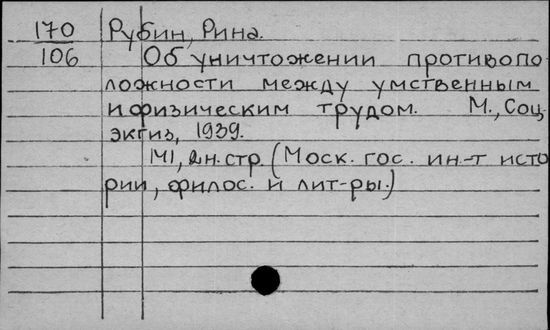 170 Рубин, Рина.
106 Об уничтожении противопо-
ложности между умственным
и физическим трудом. М., Соц
экгиз, 1939.
стр. (Моск. гос. ин-т исто
рии, филос. и лит-ры.)